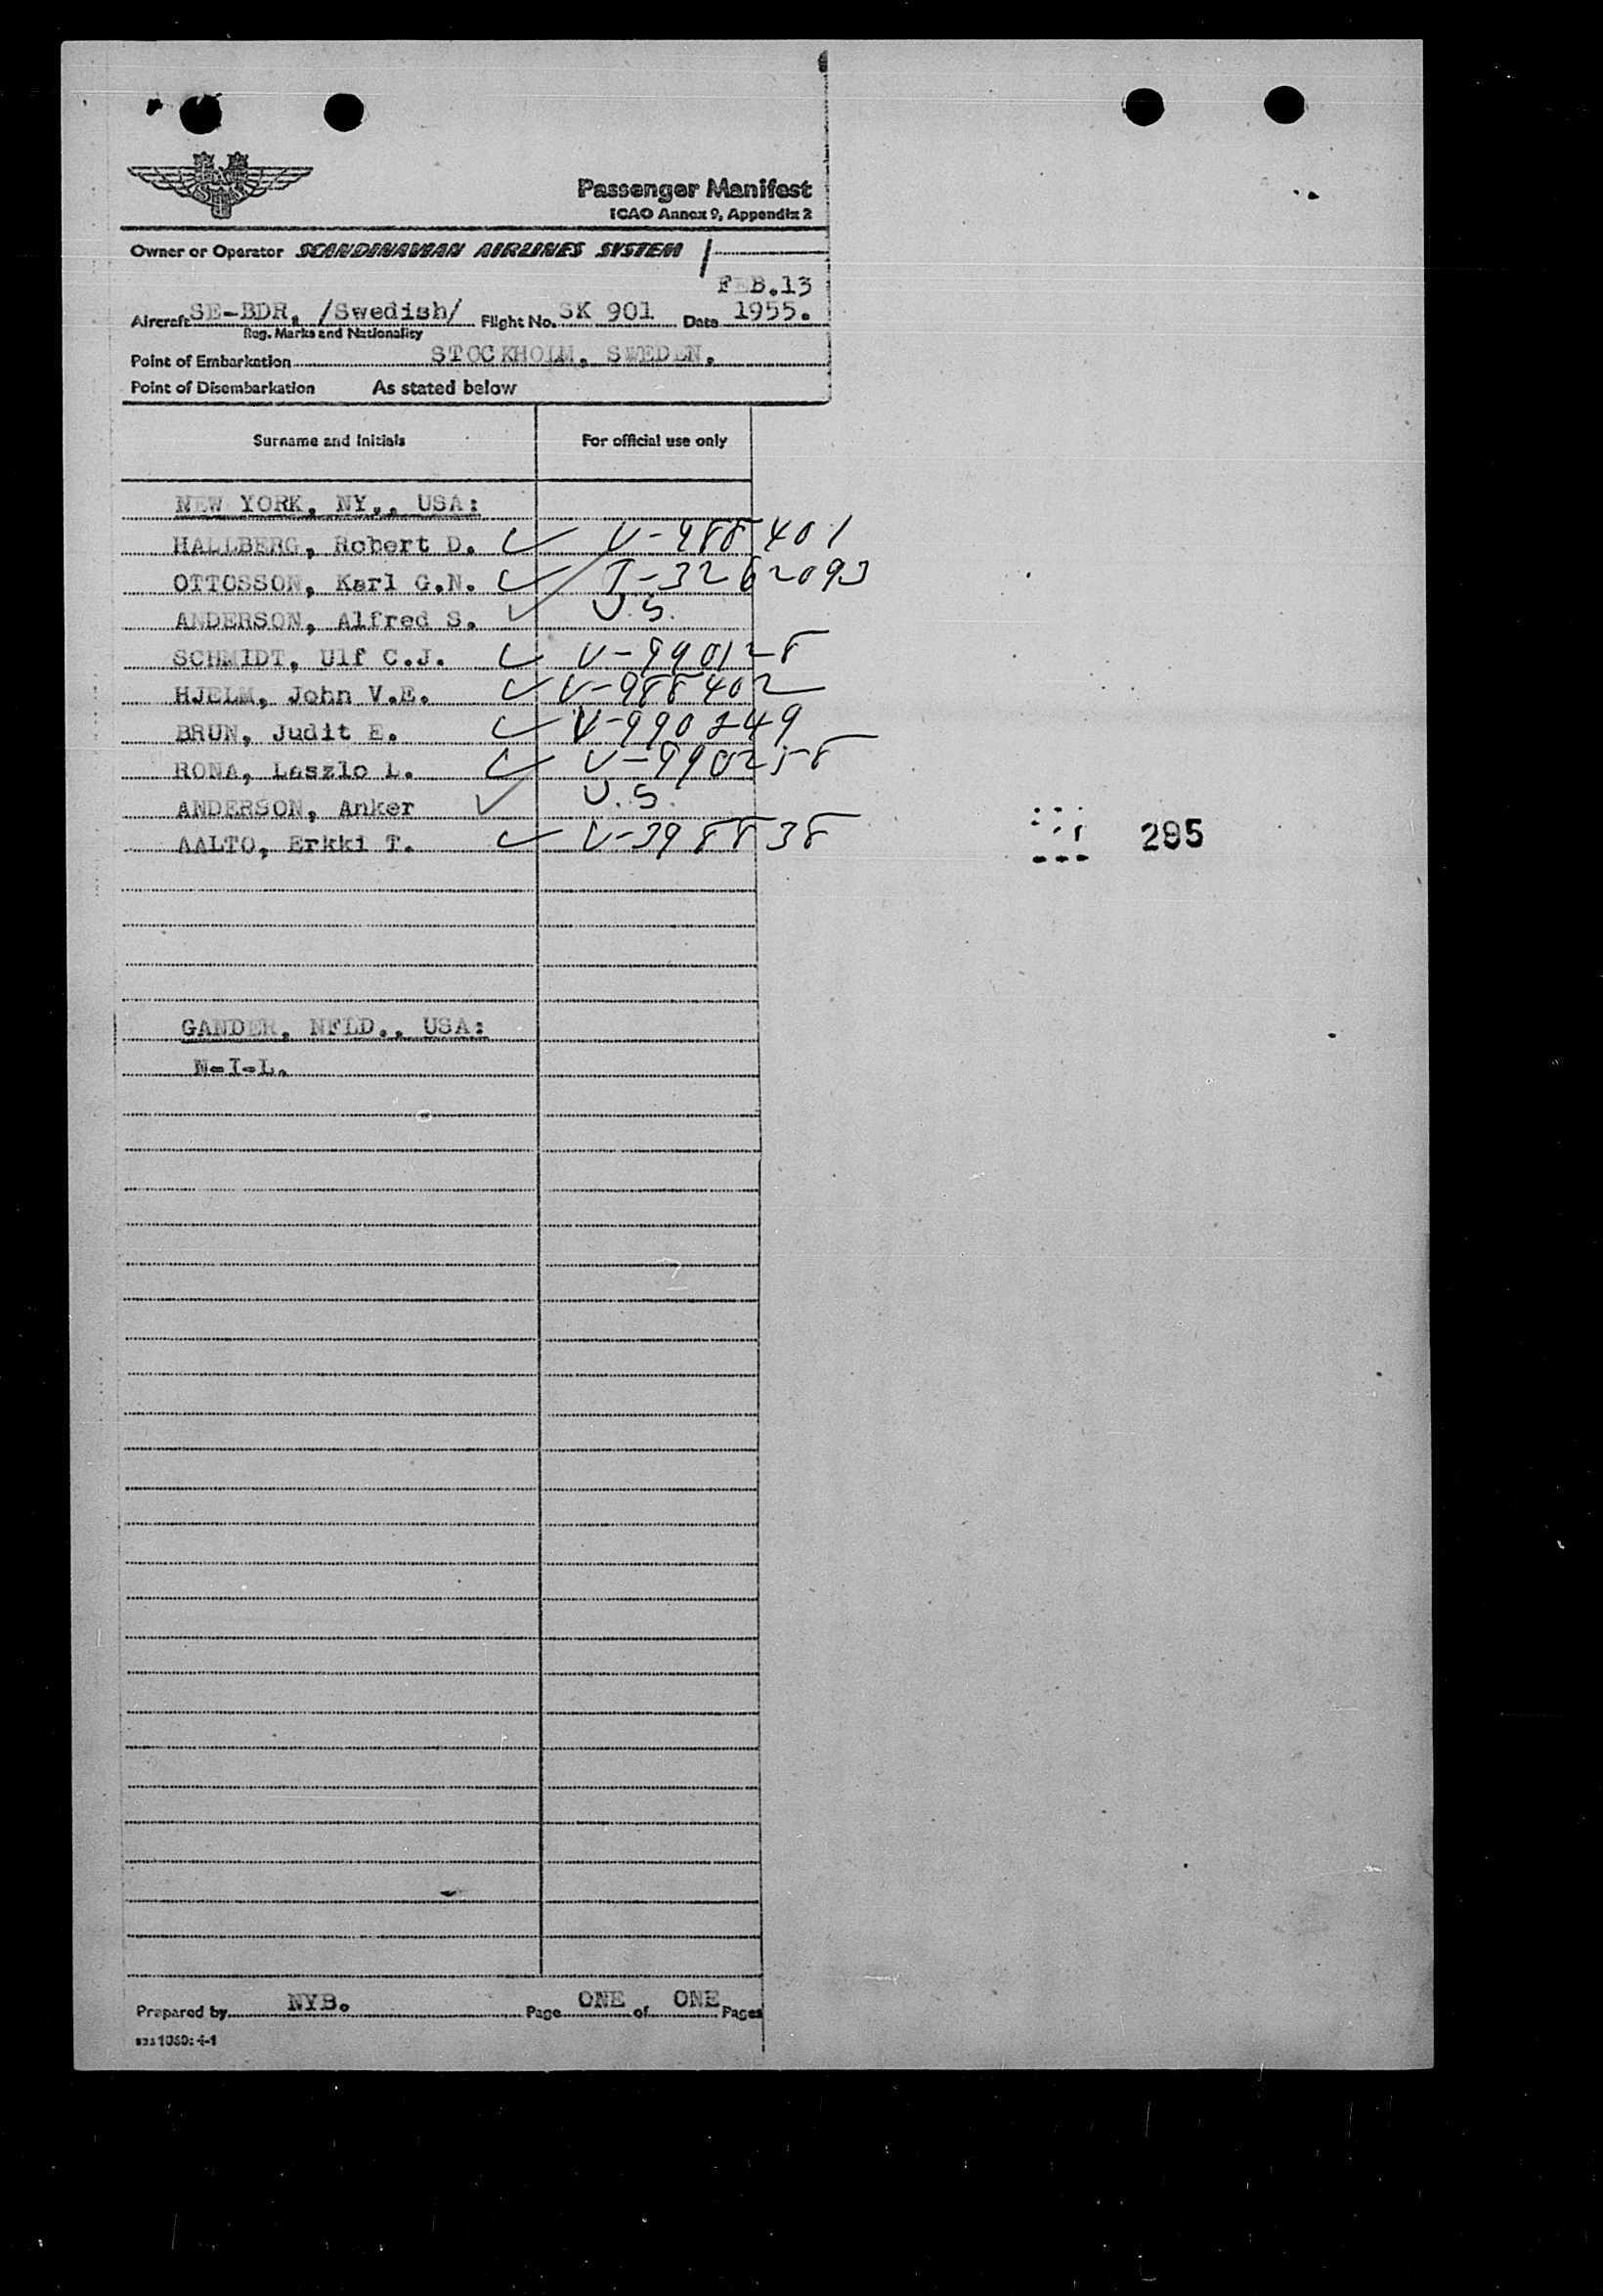 SAS
Passenger Manifest
ICAO Annex 9, Appendix 2
Owner or Operator SCANDINAVIAN AIRLINES SYSTEM
FEB.13
Aircraft SE-BDR, /Swedish/ Flight No. SK 901 Date 1955.
Reg. Marks and Nationality
Point of Embarkation STOCKHOLM, SWEDEN.
Point of Disembarkation As stated below
Surname and Initials For official use only
NEW YORK, NY., USA:
HALLBERG, Robert D. ✓ V-988401
OTTOSSON, Karl G.N. ✓ T-3262093
ANDERSON, Alfred S. ✓ U.S.
SCHMIDT, Ulf C.J. ✓ V-990128
HJELM, John V.E. ✓ V-988402
BRUN, Judit E. ✓ V-990249
RONA, Laszlo L. ✓ V-990258
ANDERSON, Anker ✓ U.S.
AALTO, Erkki T. ✓ V-398838
295
GANDER, NFLD., USA:
N-I-L.
Prepared by NYB. Page ONE of ONE Pages